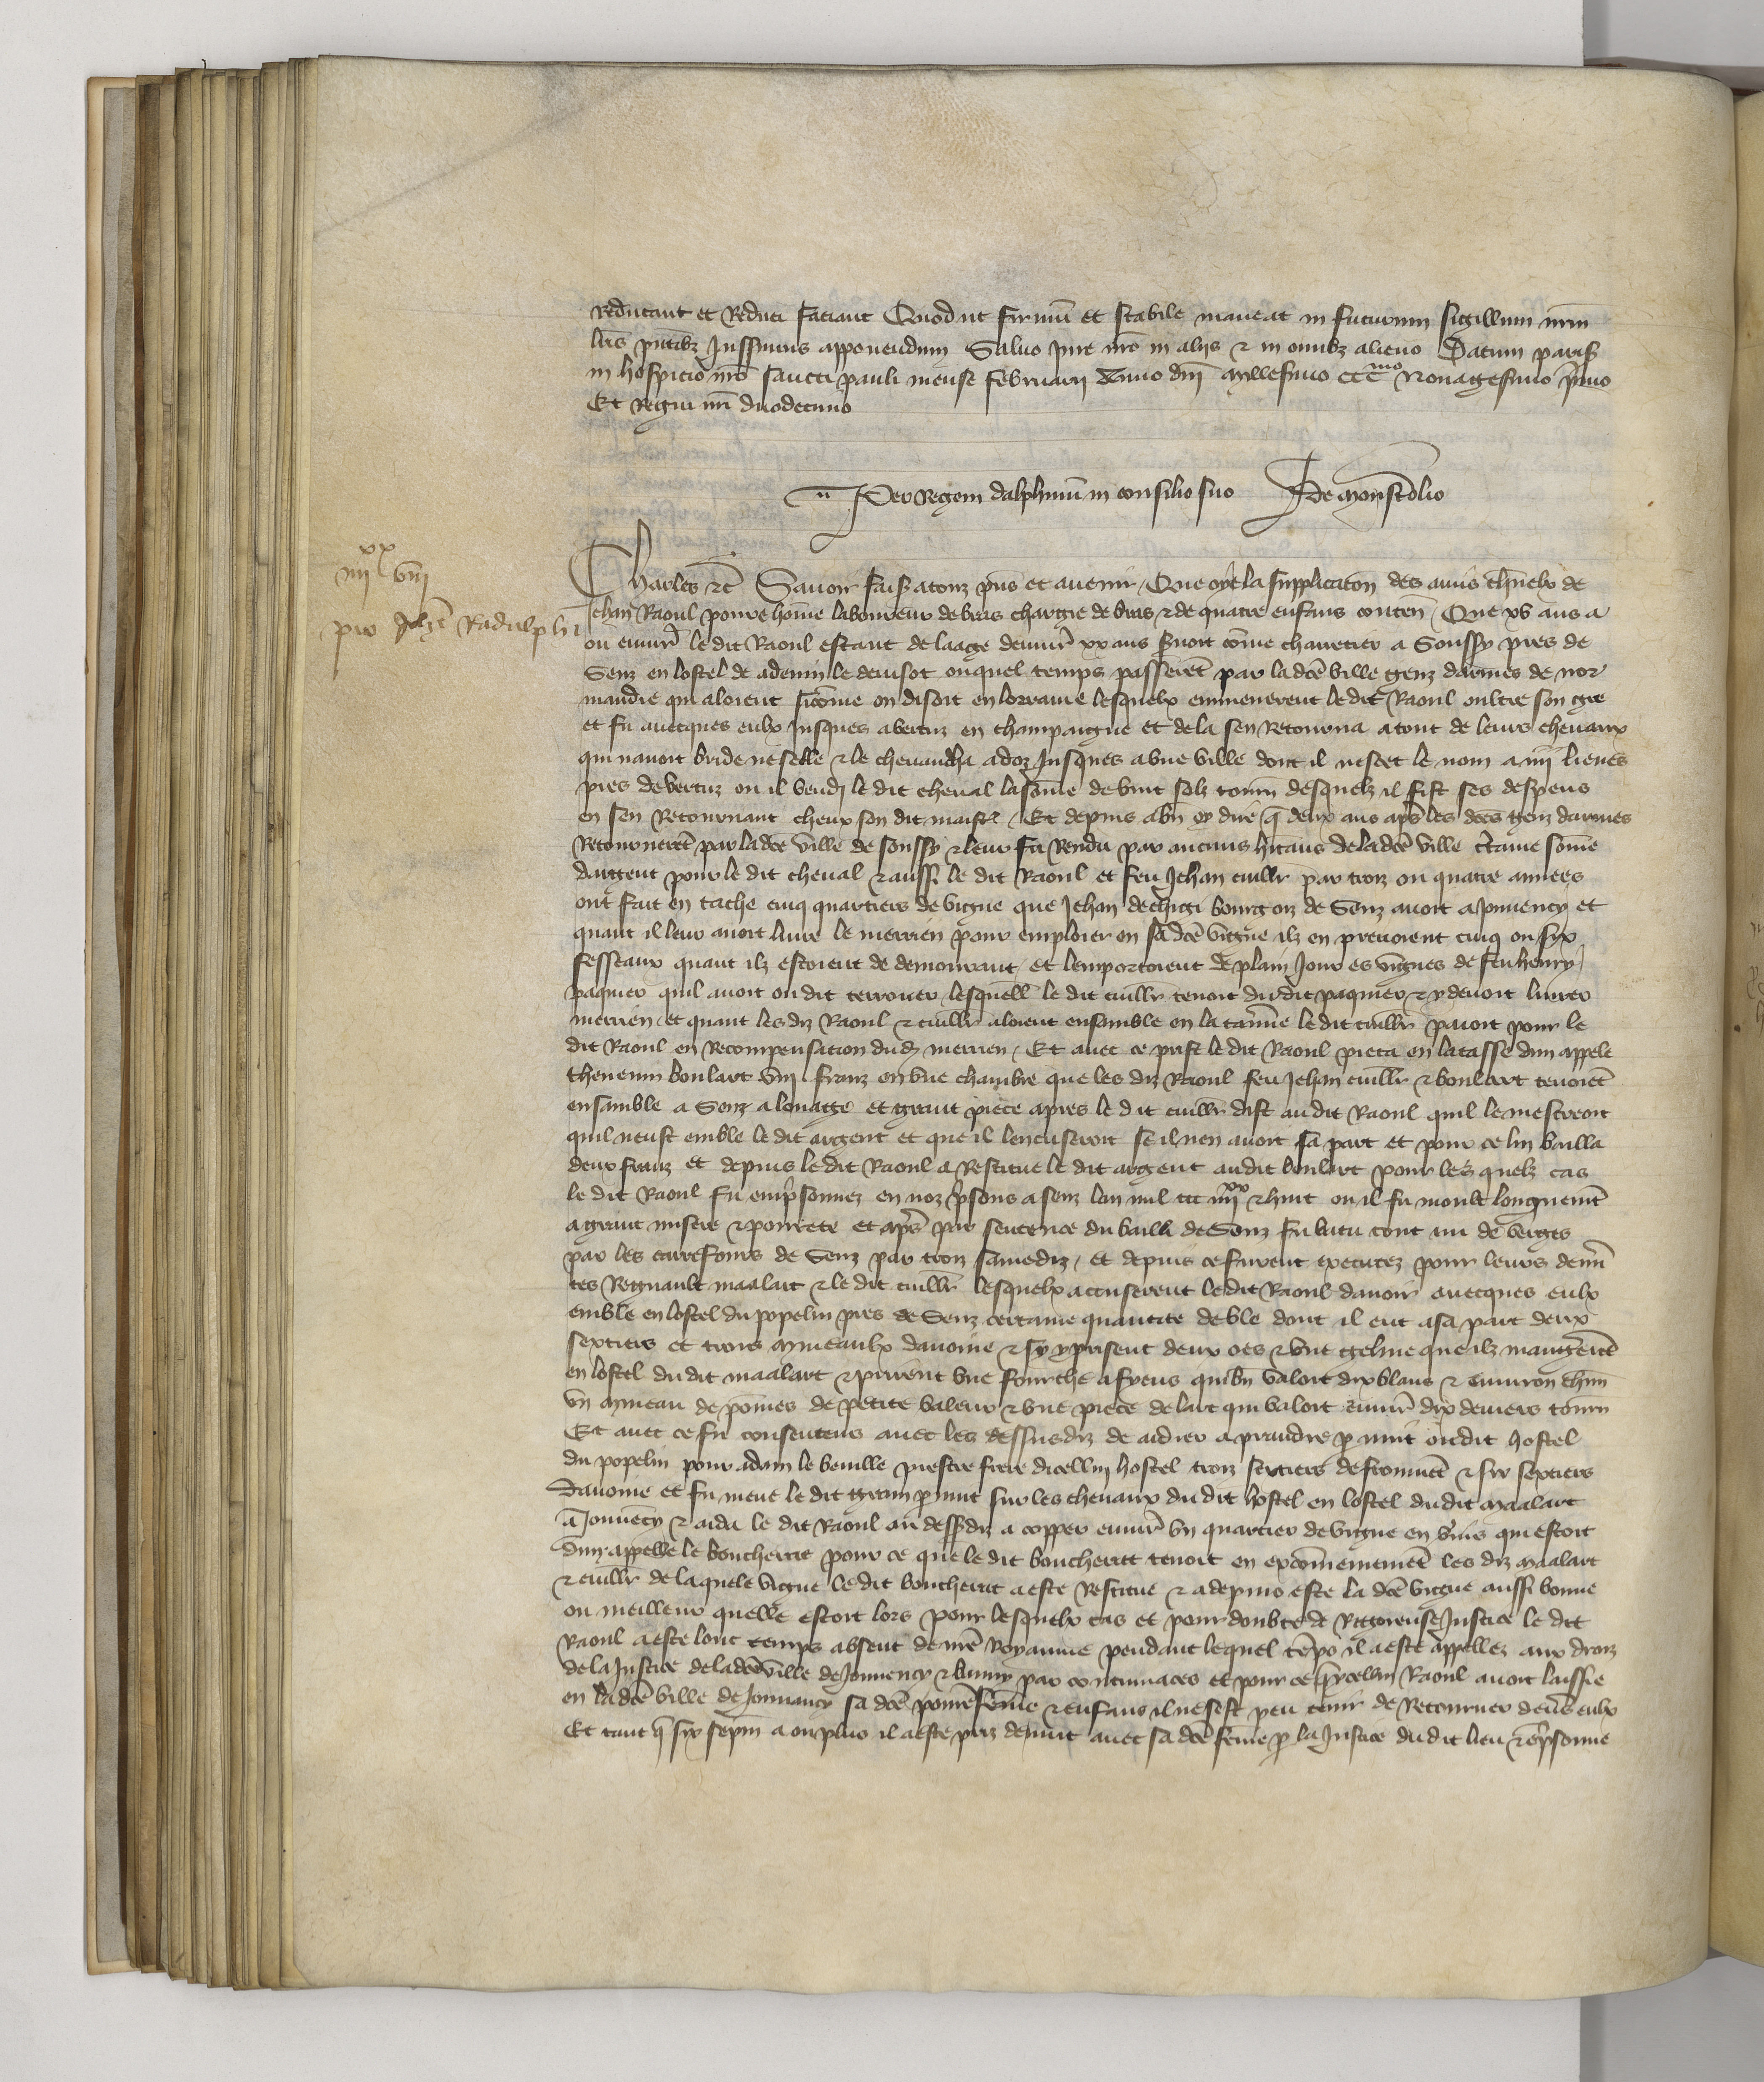 reducant et reduci faciant Quod ut firmu et stabile maneat in futurum sigillum nrm
lris pntibz Jussimus apponendum Salvo jure nro in alijs & in omnibz alieno Datum paris
in hospicio nro sancti pauli mense februarij Anno dni Millesimo CCCmo Nonagesimo pimo
Et regni nri duodecimo
Per Regem dalphinu in consilio suo De Monsterolio
iiiixx viij
pro Johe Radulphi
Charles &c Savoir faiss a touz pns et avenir Que oye la supplicacon des amis charnelx de
Jehan Raoul povre home laboureur de bras chargie de bras & de quatre enfans conten Que xv ans a
ou envir le dit Raoul estant de laage denvir xx ans servoit come charretier a Soussy pres de
Senz en lostel de adenin le denisot ouquel temps passeret par lad ville genz darmes de nor
mandie qui aloient sicome on disoit en lorraine lesquelx emmenerent le dit Raoul oultre son gre
et fu avecques eulx Jusques a vertuz en champaigne et de la sen Retourna atout de leurs chevaux
qui navoit bride ne selle & le chevaucha a doz Jusques a une ville dont il ne scet le nom a iiij lieues
pres de vertuz ou il vendi le dit cheval la some de vint solz tourn desquelz il fist ses despens
en sen Retournant cheux son dit maistre Et depuis a bn oy dire q deux ans aps les dces genz darmes
Retourneret par la dce ville de soussy & leur fu rendu par aucuns hitans de la dce ville ctaine some
dargent pour le dit cheval & aussi le dit Raoul et feu Jehan cuillr par troiz ou quatre annees
ont fait en tache cinq quartiers de vigne que Jehan de chigi bourgoiz de Senz avoit a Jouvency et
quant il leur avoit livre le merrien pour emploier en sa dce vigne ilz en prenoient cinq ou syx
fesseaux quant ilz estoient de demourant et lemportoient de plain Jour es vignes de feu henry
paquier quil avoit ou dit terrouer lesquell le dit cuillr tenoit dudit paquier & y devoit livrer
merrien et quant les diz Raoul & cuillr aloient ensamble en la taverne le dit cuillr paioit pour le
dit Raoul en Recompensation dud merrien Et avec ce prist le dit Raoul pieca en la tasse dun appele
thevenin boulart viij franz en une chambre que les diz Raoul feu Jehan cuillr & boulart tenoiet
ensamble a Senz a louage et grant piece apres le dit cuillr dist audit Raoul quil le mescreoit
quil neust emble le dit argent et que il lencuseroit se il nen avoit sa part et pour ce lui bailla
deux franz et depuis le dit Raoul a Restitue le dit argent audit boulart pour les quelz cas
le dit Raoul fu empsonnez en noz psons a senz lan mil ccc iiiixx & huit ou il fu moult longuemt
a grant misere & povrete et aps par sentence du bailli de Senz fu batu tout nu de verges
par les carrefours de Senz par troiz samediz et depuis ce furent executez pour leurs demi
tes Regnault maalart & le dit cuillr lesquelx accuserent le dit Raoul davoir avecques eulx
emble en lostel du popelin pres de Senz certaine quantite de ble dont il eut a sa part deux
sextiers et trois mineaulx davoine & sy y prisent deux oes & une geline que ilz mangeret
en lostel du dit maalart & prirent une fourche a fyens qui bn valoit dix blans & environ
un mineau de pomes de petite valeur & une piece de lart qui valoit envir dix deniers tourn
Et avec ce fu consentens avec les dessusdiz de aidier a prandre p nuit oudit hostel
du popelin pour adam le beuille prestre frere dicelluy hostel troiz sextiers de fromet & six sextiers
davoine et fu mene le dit grain p nuit sur les chevaux du dit hostel en lostel dudit maalart
a Jouvecy & aida le dit Raoul au dessdiz a copper envir un quartier de vigne en qui estoit
dun appelle le boucherat pour ce que le dit boucherat tenoit en excomeniemet les diz maalart
& cuillr de laquele vigne le dit boucherat a este Restitue & a depuis este la dce vigne aussi bonne
ou meilleur quelle estoit lors pour lesquelx cas et pour doubte de Rigoreuse Justice le dit
Raoul a este lonc temps absent de nre Royaume pendant lequel temps il a este appellez aux droiz
de la Justice de la dce ville de Jouvency & banny par contumaces et pour ce q ycelluy Raoul avoit laissie
en la dce ville de Jouvancy sa dce povre feme & enfans il ne sest peu tenir de Retourner devs eulx
Et tant q six sepm a ou plus il a este priz de nuit avec sa dce feme p la Justice du dit lieu & empsonne